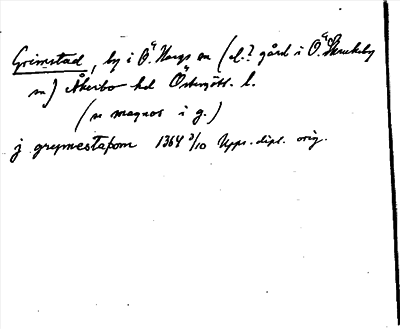 Grimstad, by i Ö. Hargs sn (el.? gård i Ö. Skrukeby
sn) Åkerbo hd Östergötl. l.
(n magnos i g.)
j grymestaþom 1364 3/10 Upps. dipl. orig.